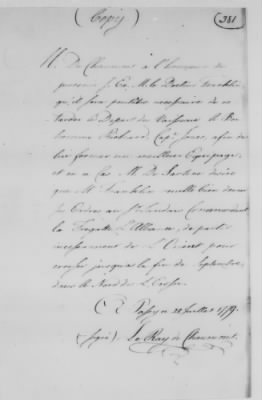 (Copie)
381
M. De Chaumont a l'honneur de
prevenir S. Ex. M. le Docteur Franklin
qu'il sera peutêtre necessaire de re
tarder le Depart du Vaisseau le Bon
homme Richard Capt Jones, afin de
lui former un meilleur Equipage,
et en ce cas M. De Sartine desire
que M. Franklin veuille bien donner
ses Ordres au Sr. Landais Commandant
la Fregatte l'Alliance, de partir
incessament de L'Orient pour
croiser jusqu'à la fin de Septembre,
dans le Nord de l'Ecosse.
A Passy ce 28 Juillet 1779.
(signé) Le Ray de Chaumont.